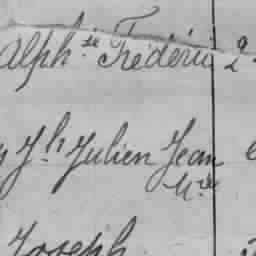 Alph.se Frédéric 9
2
Jh Julien Jean
Mie
Joseph